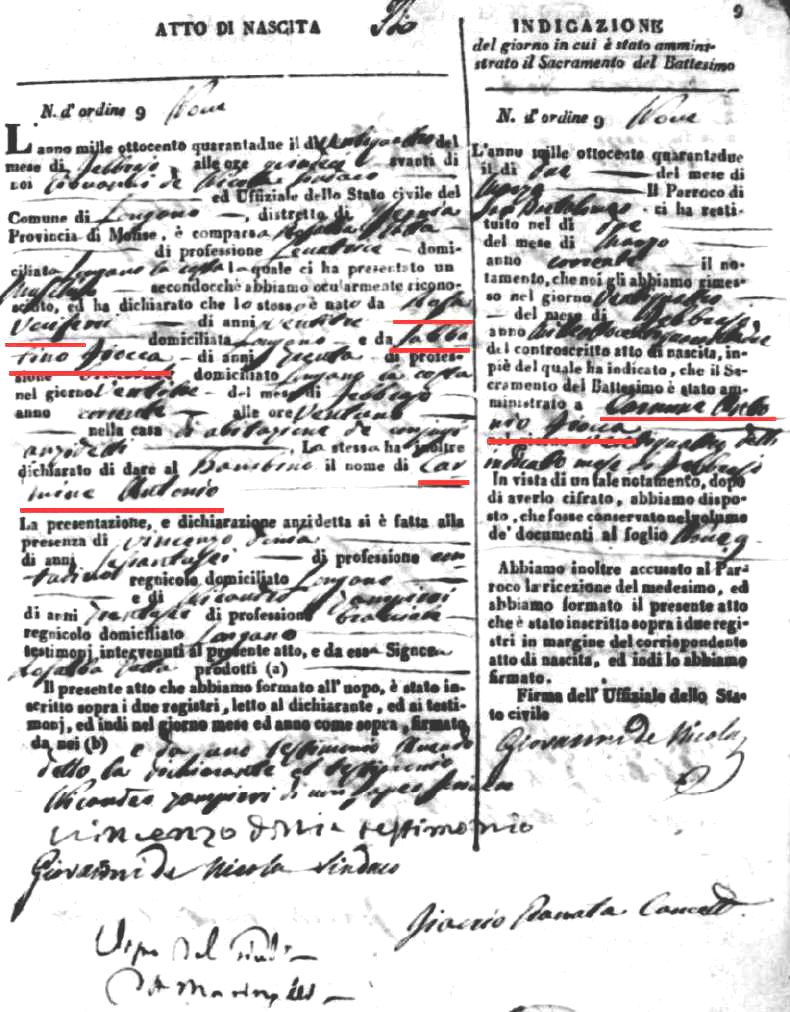 9
ATTO DI NASCITA
N. d'ordine 9 Nove
L'anno mille ottocento quarantadue il dì ventiquattro del
mese di Febbrajo alle ore avanti di
noi Giovanni de Nicola Sindaco
ed Uffiziale dello Stato civile del
Comune di Longano, distretto di Isernia
Provincia di Molise, è comparsa Rosalba
di professione Levatrice domi-
ciliata Longano la quale ci ha presentato un
Maschio secondocchè abbiamo ocularmente ricono-
sciuto, ed ha dichiarato che lo stesso è nato da Rosa
Veniferi di anni ventitre
domiciliata Longano e da Sabba
tino Iocca di anni trenta di profes-
sione domiciliato Longano
nel giorno ventitre del mese di Febbrajo
anno corrente alle ore ventuno
nella casa di abitazione de conjugi
anzidetti. La stessa ha inoltre
dichiarato di dare al Bambino il nome di Car
mine Antonio
La presentazione, e dichiarazione anzidetta si è fatta alla
presenza di Vincenzo
di anni di professione con
tadino regnicolo domiciliato Longano
e di Nicandro Zampieri
di anni di professione Bracciale
regnicolo domiciliato Longano
testimonj intervenuti al presente atto, e da essa Signora
Rosalba prodotti (a)
Il presente atto che abbiamo formato all'uopo, è stato in-
scritto sopra i due registri, letto al dichiarante, ed ai testi-
monj, ed indi nel giorno mese ed anno come sopra, firmato
da noi (b) e da uno testimonio avendo
detto la dichiarante el testimonio
Nicandro Zampieri di non saper scrivere
Vincenzo testimonio
Giovanni de Nicola Sindaco
INDICAZIONE
del giorno in cui è stato ammini-
strato il Sacramento del Battesimo
N. d'ordine 9 Nove
L'anno mille ottocento quarantadue
il dì tre del mese di
Marzo Il Parroco di
San Bartolomeo ci ha resti-
tuito nel dì tre
del mese di Marzo
anno corrente il no-
tamento, che noi gli abbiamo rimes-
so nel giorno ventiquattro
del mese di Febbrajo
anno milleottocentoquarantadue
del controscritto atto di nascita, in-
piè del quale ha indicato, che il Sa-
cramento del Battesimo è stato am-
ministrato a Carmine Anto
nio Iocca
ventiquattro detto
indicato mese di Febbrajo
In vista di un tale notamento, dopo
di averlo cifrato, abbiamo dispo-
sto, che fosse conservato nel volume
de' documenti al foglio Nove 9
Abbiamo inoltre accusato al Par-
roco la ricezione del medesimo, ed
abbiamo formato il presente atto
che è stato inscritto sopra i due regi-
stri in margine del corrispondente
atto di nascita, ed indi lo abbiamo
firmato.
Firma dell' Uffiziale dello Sta-
to civile
Giovanni de Nicola